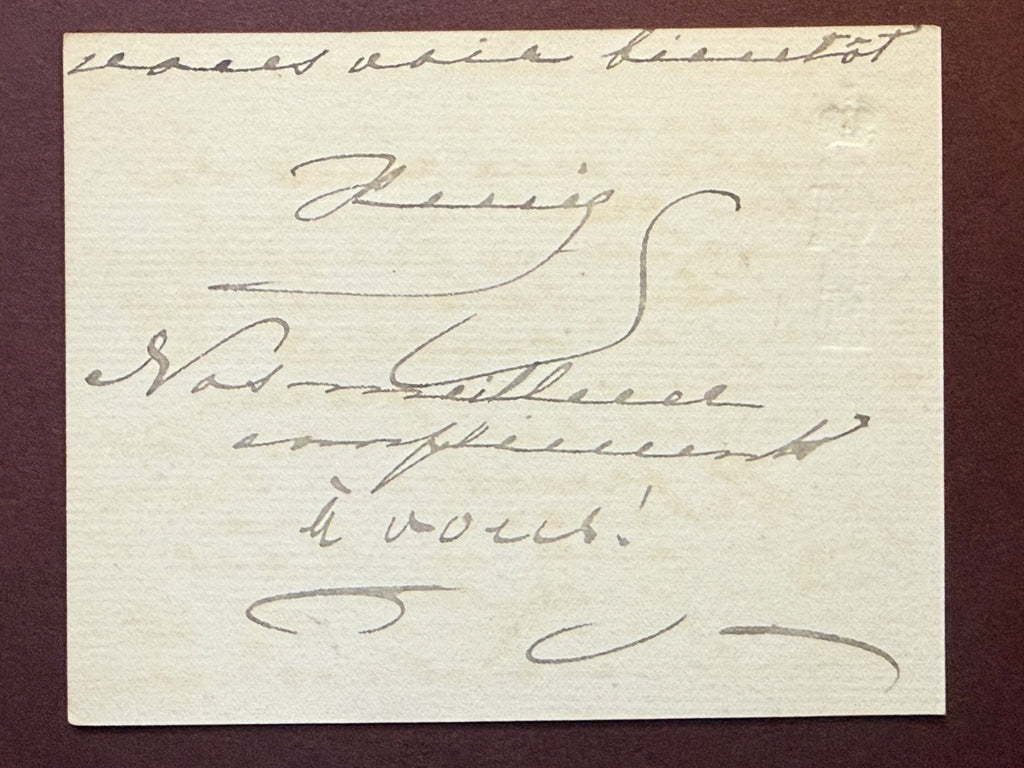 vous voir bientôt
Nos meilleurs
compliments
à vous!